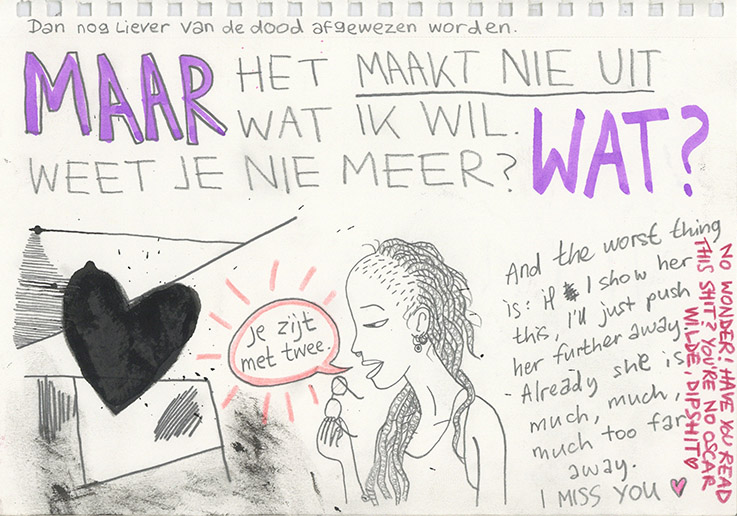 Dan nog Liever van de dood afgewezen worden.
MAAR HET MAAKT NIE UIT
WAT IK WIL.
WEET JE NIE MEER? WAT?
je zijt
met twee.
And the worst thing
is: if I show her
this, I'll just push
her further away.
- Already she is
much, much,
much too far
away.
I MISS YOU ♥
NO WONDER! HAVE YOU READ
THIS SHIT? YOU'RE NO OSCAR
WILDE, DIPSHIT ♥